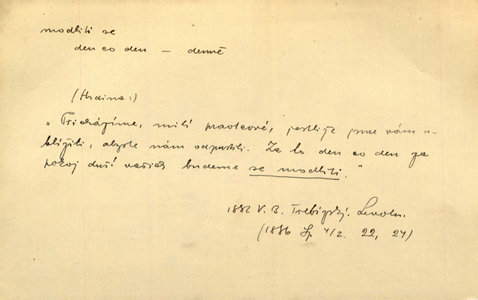 modliti se
den co den – denně
(Hrdina:)
"Přicházíme, milí praotcové, jestliže jsme vám u-
blížili, abyste nám odpustili. Za to den co den za
pokoj duší vašich budeme se modliti."
1882 V. B. Třebízský. Levoh.
(1886 Sp. 4/2. 22, 24)